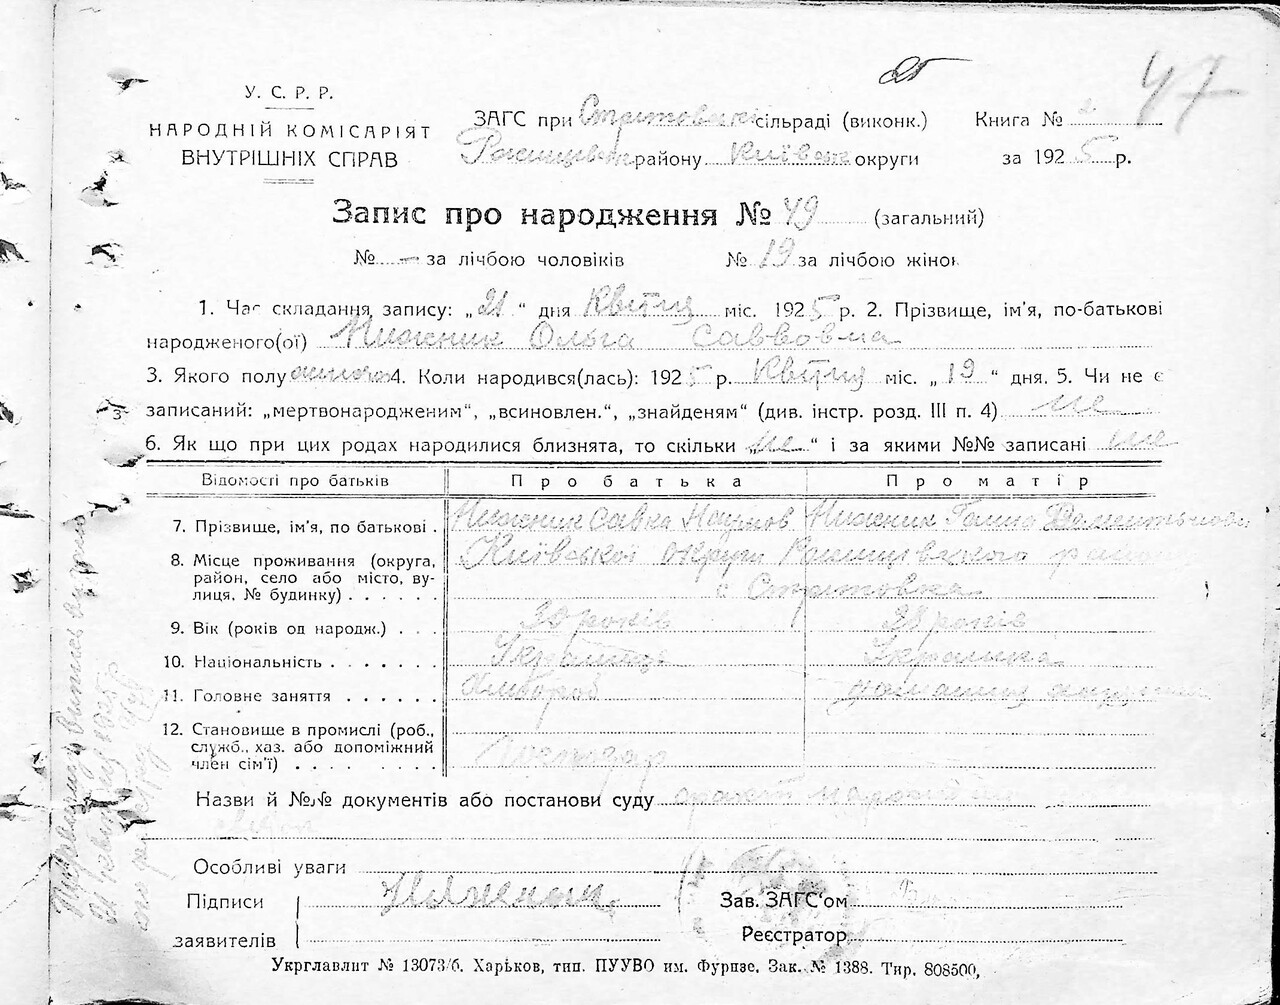 47
У. С. Р. Р.
НАРОДНІЙ КОМІСАРІЯТ
ВНУТРІШНІХ СПРАВ
ЗАГС при Стритовській сільраді (виконк.)
району Київськ округи
Книга № 2
за 1925 р.
Запис про народження № 49 (загальний)
№ — за лічбою чоловіків № 19 за лічбою жінок
1. Час складання запису: „21“ дня Квітня міс. 1925 р. 2. Прізвище, ім'я, по-батькові
народженого(ої) Нижник Ольга Саввовма
3. Якого полу 4. Коли народився(лась): 1925 р. Квітня міс. „19“ дня. 5. Чи не є
записаний: „мертвонародженим“, „всиновлен.“, „знайденям“ (див. інстр. розд. III п. 4) не
6. Як що при цих родах народилися близнята, то скільки „не“ і за якими №№ записані не
Відомості про батьків Про батька Про матір
7. Прізвище, ім'я, по батькові . Нижник Савка Наумов. Нижник Ганна
8. Місце проживання (округа, Київської округи району
район, село або місто, ву-
лиця, № будинку) . . . . . . с Стритовка
9. Вік (років од народж.) . . . 30 років 28 років
10. Національність . . . . . . . Українець Українка
11. Головне заняття . . . . . . Хлібороб домашня
12. Становище в промислі (роб.,
служб., хаз. або допоміжний
член сім'ї) . . . . . . . . Господар
Назви й №№ документів або постанови суду
Особливі уваги
Підписи
заявителів
Зав. ЗАГС'ом
Реєстратор
Укрглавліт № 13073/6. Харьков, тип. ПУУВО им. Фурнзе. Зак. № 1388. Тир. 808500,